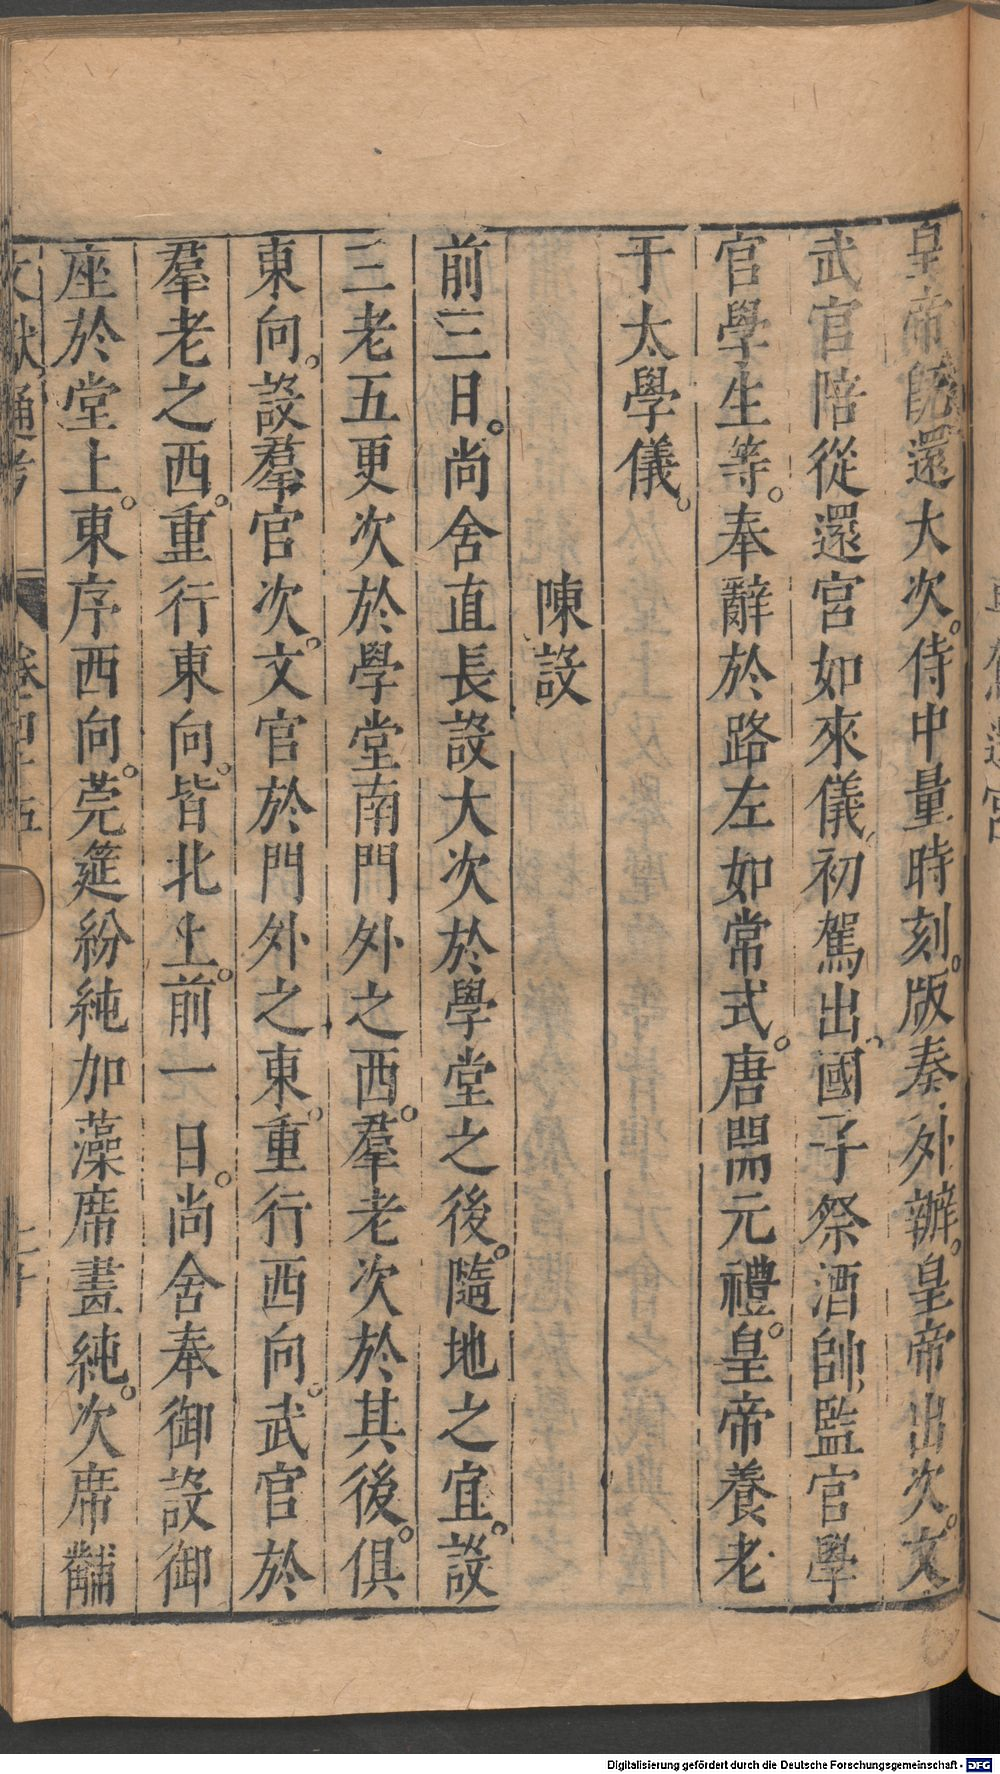 皇帝既還大次。侍中量時刻。版奏外辦。皇帝出次。文
武官陪從還宮如來儀。初駕出。國子祭酒帥監官學
官學生等。奉辭於路左如常式。唐開元禮。皇帝養老
于太學儀。
陳設
前三日。尚舍直長設大次於學堂之後。隨地之宜。設
三老五更次於學堂南門外之西。羣老次於其後。俱
東向。設羣官次。文官於門外之東。重行西向。武官於
羣老之西。重行東向。皆北上。前一日。尚舍奉御設御
座於堂上。東序西向。莞筵紛純加藻席畫純。次席黼
文獻通考 卷四十五
Digitalisierung gefördert durch die Deutsche Forschungsgemeinschaft - DFG